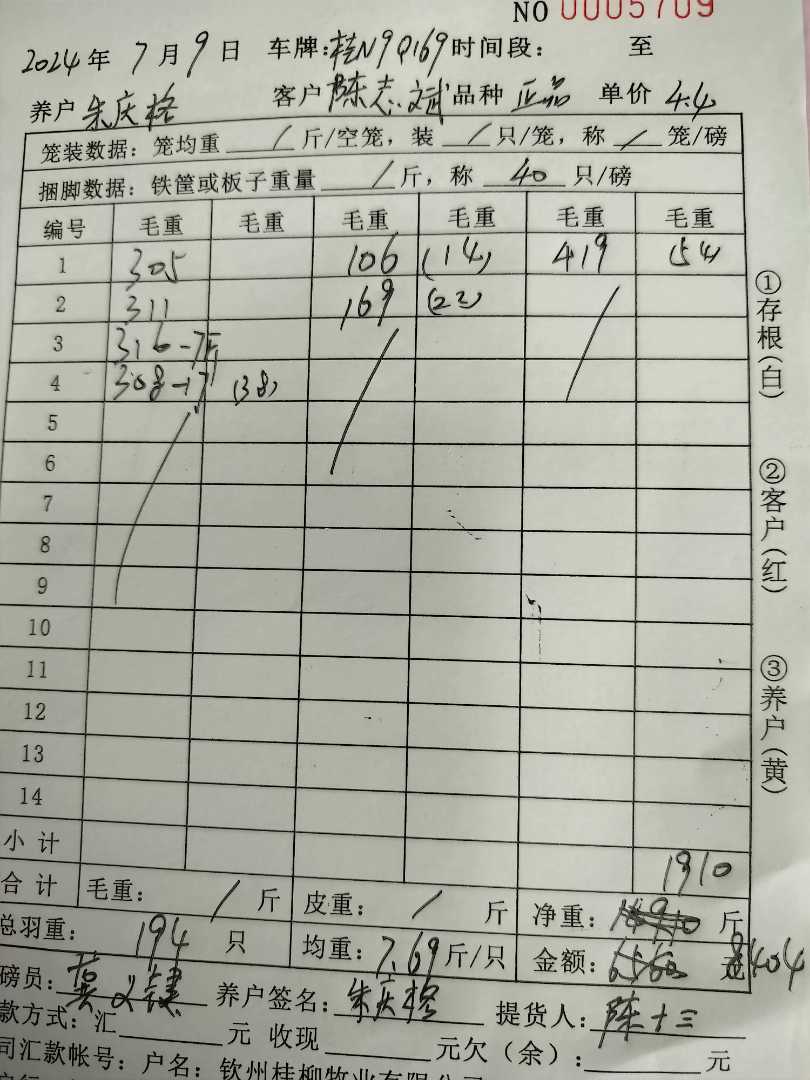 NO 0005709
2024年 7月9日 车牌:桂N9Q169 时间段: 至
养户 朱庆格 客户 陈志斌 品种 正品 单价 4.4
笼装数据: 笼均重 / 斤/空笼, 装 / 只/笼, 称 / 笼/磅
捆脚数据: 铁筐或板子重量 / 斤, 称 40 只/磅
编号 毛重 毛重 毛重 毛重 毛重 毛重
1 305 106 (14) 419 54
2 311 169 (22)
3 316
4 308 (38)
5
6
7
8
9
10
11
12
13
14
小计 1910
合计 毛重: / 斤 皮重: / 斤 净重: 斤
总羽重: 194 只 均重: 7.69 斤/只 金额: 元 8404
磅员: 养户签名: 朱庆格 提货人: 陈十三
款方式: 汇 元 收现 元欠(余): 元
司汇款帐号: 户名: 钦州桂柳牧业有限公司
①存根(白)
②客户(红)
③养户(黄)